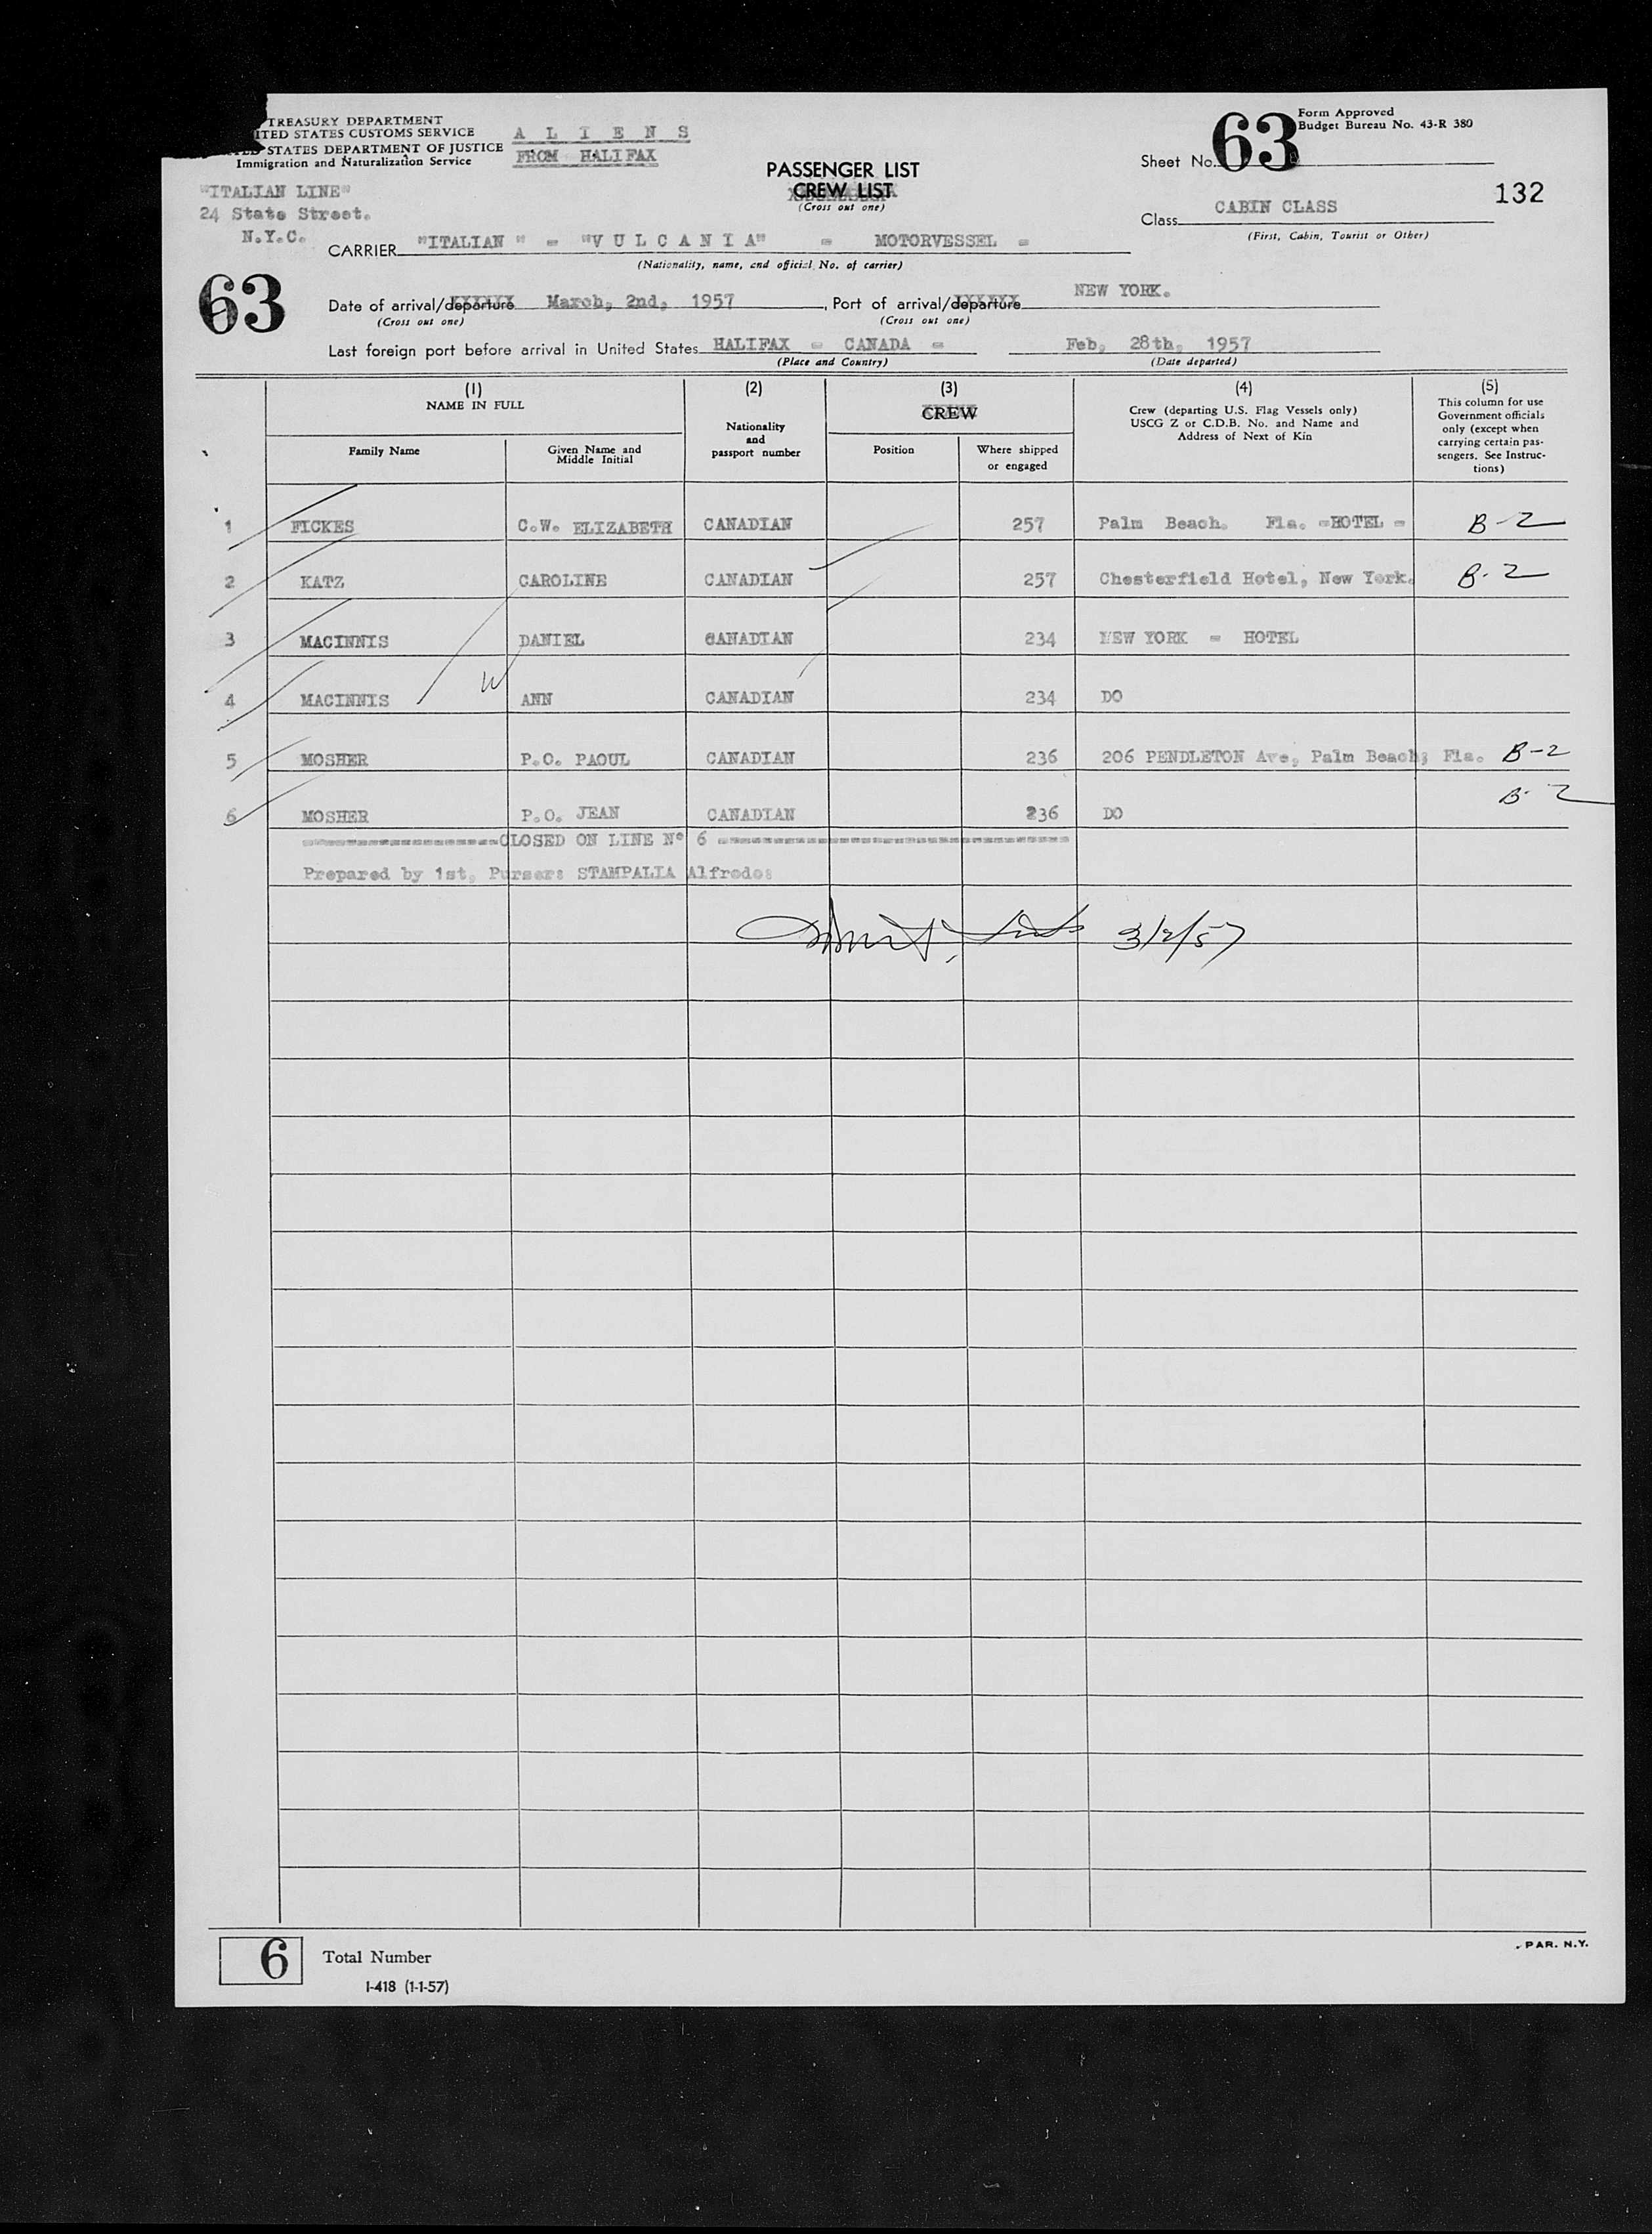 TREASURY DEPARTMENT
ITED STATES CUSTOMS SERVICE
STATES DEPARTMENT OF JUSTICE
Immigration and Naturalization Service
A L I E N S
FROM HALIFAX
"ITALIAN LINE"
24 State Street.
N.Y.C.
PASSENGER LIST
CREW LIST
(Cross out one)
Form Approved
Budget Bureau No. 43-R 380
Sheet No. 63
132
Class CABIN CLASS
(First, Cabin, Tourist or Other)
CARRIER "ITALIAN " = "V U L C A N I A" = MOTORVESSEL =
(Nationality, name, and official No. of carrier)
63
Date of arrival/departure March, 2nd, 1957, Port of arrival/departure NEW YORK.
(Cross out one) (Cross out one)
Last foreign port before arrival in United States HALIFAX = CANADA = Feb, 28th, 1957
(Place and Country) (Date departed)
(1) NAME IN FULL
Family Name
Given Name and Middle Initial
(2) Nationality and passport number
(3) CREW
Position
Where shipped or engaged
(4) Crew (departing U.S. Flag Vessels only) USCG Z or C.D.B. No. and Name and Address of Next of Kin
(5) This column for use Government officials only (except when carrying certain passengers. See Instructions)
1 FICKES C.W. ELIZABETH CANADIAN 257 Palm Beach. Fla. =HOTEL = B-2
2 KATZ CAROLINE CANADIAN 257 Chesterfield Hotel, New York. B-2
3 MACINNIS DANIEL CANADIAN 234 NEW YORK = HOTEL
4 MACINNIS W ANN CANADIAN 234 DO
5 MOSHER P.C. PAOUL CANADIAN 236 206 PENDLETON Ave, Palm Beach, Fla. B-2
6 MOSHER P.O. JEAN CANADIAN 236 DO B-2
CLOSED ON LINE Nº 6
Prepared by 1st, Purser: STAMPALIA Alfredo:
3/2/57
6 Total Number
I-418 (1-1-57)
PAR. N.Y.